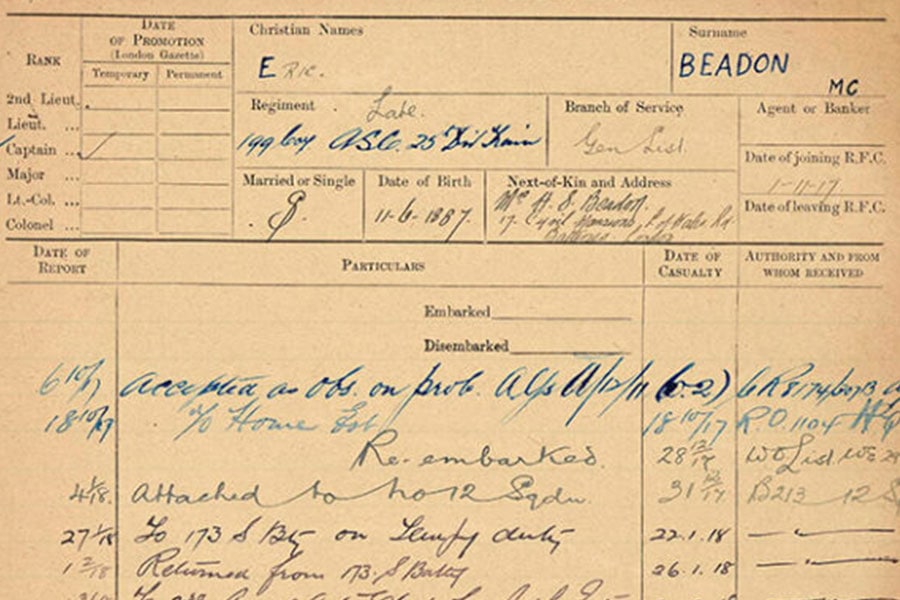 DATE OF PROMOTION
(London Gazette)
RANK
Temporary Permanent
2nd Lieut.
Lieut. ...
Captain ...
Major ...
Lt.-Col. ...
Colonel ...
Christian Names
ERIC.
Surname
BEADON
MC
Regiment
Late.
199 Coy ASC. 25 Div Train
Branch of Service
Gen List.
Agent or Banker
Date of joining R.F.C.
1-11-17.
Date of leaving R.F.C.
Married or Single
S.
Date of Birth
11-6-1887.
Next-of-Kin and Address
H. S. Beadon
17. Mansions, P. of Wales Rd
Battersea London
DATE OF REPORT
PARTICULARS
DATE OF CASUALTY
AUTHORITY AND FROM WHOM RECEIVED
Embarked
Disembarked
6 10/17 Accepted as Obs. on prob.
18 10/17 To Home Est 18 10/17 R.O. 1104
Re-embarked. 28 12/17 WO List.
4/1/18. Attached to No 12 Sqdn. 31 12/17 B213 12 S
27/1/18 To 173 S Bty on Tempy duty 22.1.18
1 2/18 Returned from 173. S Batty 26.1.18